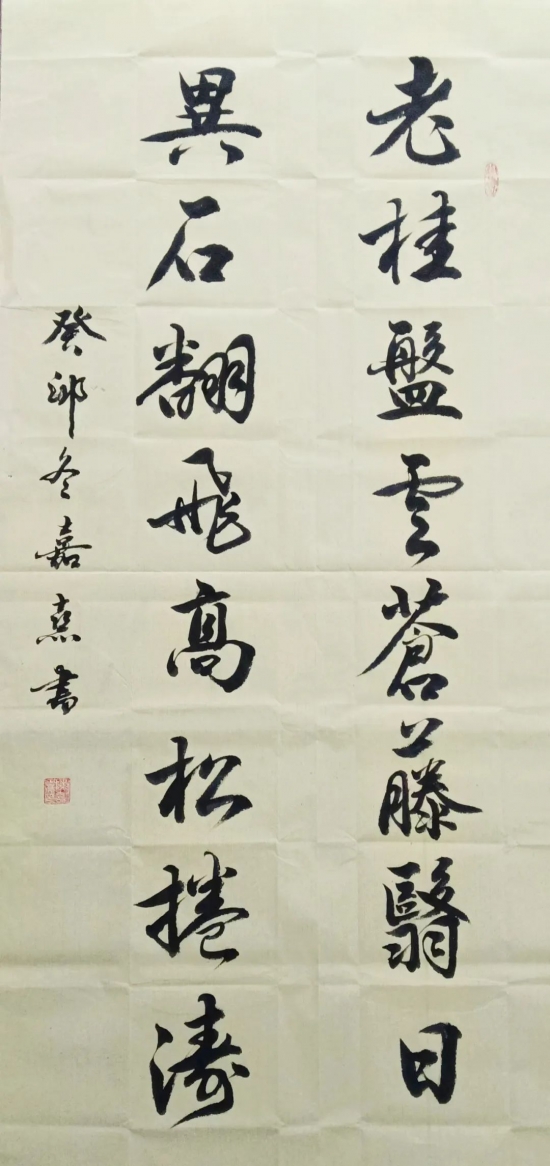 老桂盤雲蒼藤翳日
異石翻飛高松捲濤
癸卯冬嘉熹書